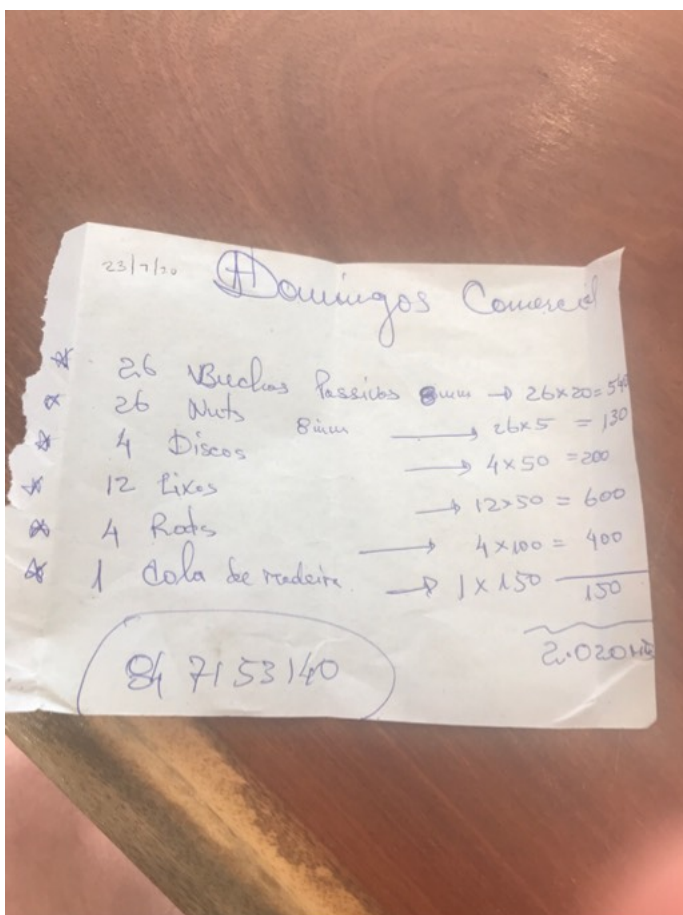 23/7/20 Domingos Comercial
26 Buchas Passivas 8mm → 26×20=540
26 Nuts 8mm → 26×5 = 130
4 Discos → 4×50 =200
12 Lixas → 12×50 = 600
4 Rods → 4×100 = 400
1 Cola de madeira → 1×150 150
2.020Mt
84 7153140